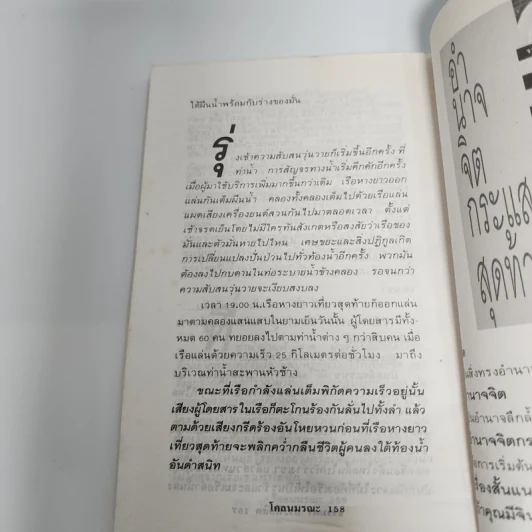 ใต้ผืนน้ำพร้อมกับร่างของมัน
รุ่งเช้าความสับสนวุ่นวายก็เริ่มขึ้นอีกครั้ง ที่
ท่าน้ำ การสัญจรทางน้ำเริ่มคึกคักอีกครั้ง
เมื่อผู้มาใช้บริการเพิ่มมากขึ้นกว่าเดิม เรือหางยาวออก
แล่นกันเต็มผืนน้ำ คลองทั้งคลองเต็มไปด้วยเรือแล่น
แผดเสียงเครื่องยนต์สวนกันไปมาตลอดเวลา ตั้งแต่
เช้าจรดเย็นโดยไม่มีใครทันสังเกตหรือสงสัยว่าเรือของ
มันและตัวมันหายไปไหน เศษขยะและสิ่งปฏิกูลเกิด
การเปลี่ยนแปลงปั่นป่วนไปทั่วท้องน้ำอีกครั้ง พวกมัน
ต้องลงไปกบดานในท่อระบายน้ำข้างคลอง รอจนกว่า
ความสับสนวุ่นวายจะเงียบสงบลง
เวลา 19.00 น.เรือหางยาวเที่ยวสุดท้ายก็ออกแล่น
มาตามคลองแสนแสบในยามเย็นวันนั้น ผู้โดยสารมีทั้ง-
หมด 60 คน ทยอยลงไปตามท่าน้ำต่าง ๆ กว่าสิบคน เมื่อ
เรือแล่นด้วยความเร็ว 25 กิโลเมตรต่อชั่วโมง มาถึง
บริเวณท่าน้ำสะพานหัวช้าง
ขณะที่เรือกำลังแล่นเต็มพิกัดความเร็วอยู่นั้น
เสียงผู้โดยสารในเรือก็ตะโกนร้องกันลั่นไปทั้งลำ แล้ว
ตามด้วยเสียงกรีดร้องอันโหยหวนก่อนที่เรือหางยาว
เที่ยวสุดท้ายจะพลิกคว่ำกลืนชีวิตผู้คนลงใต้ท้องน้ำ
อันดำสนิท
โคลนมรณะ 158
อำ
นาจ
จิต
กระแส
สุดท้า